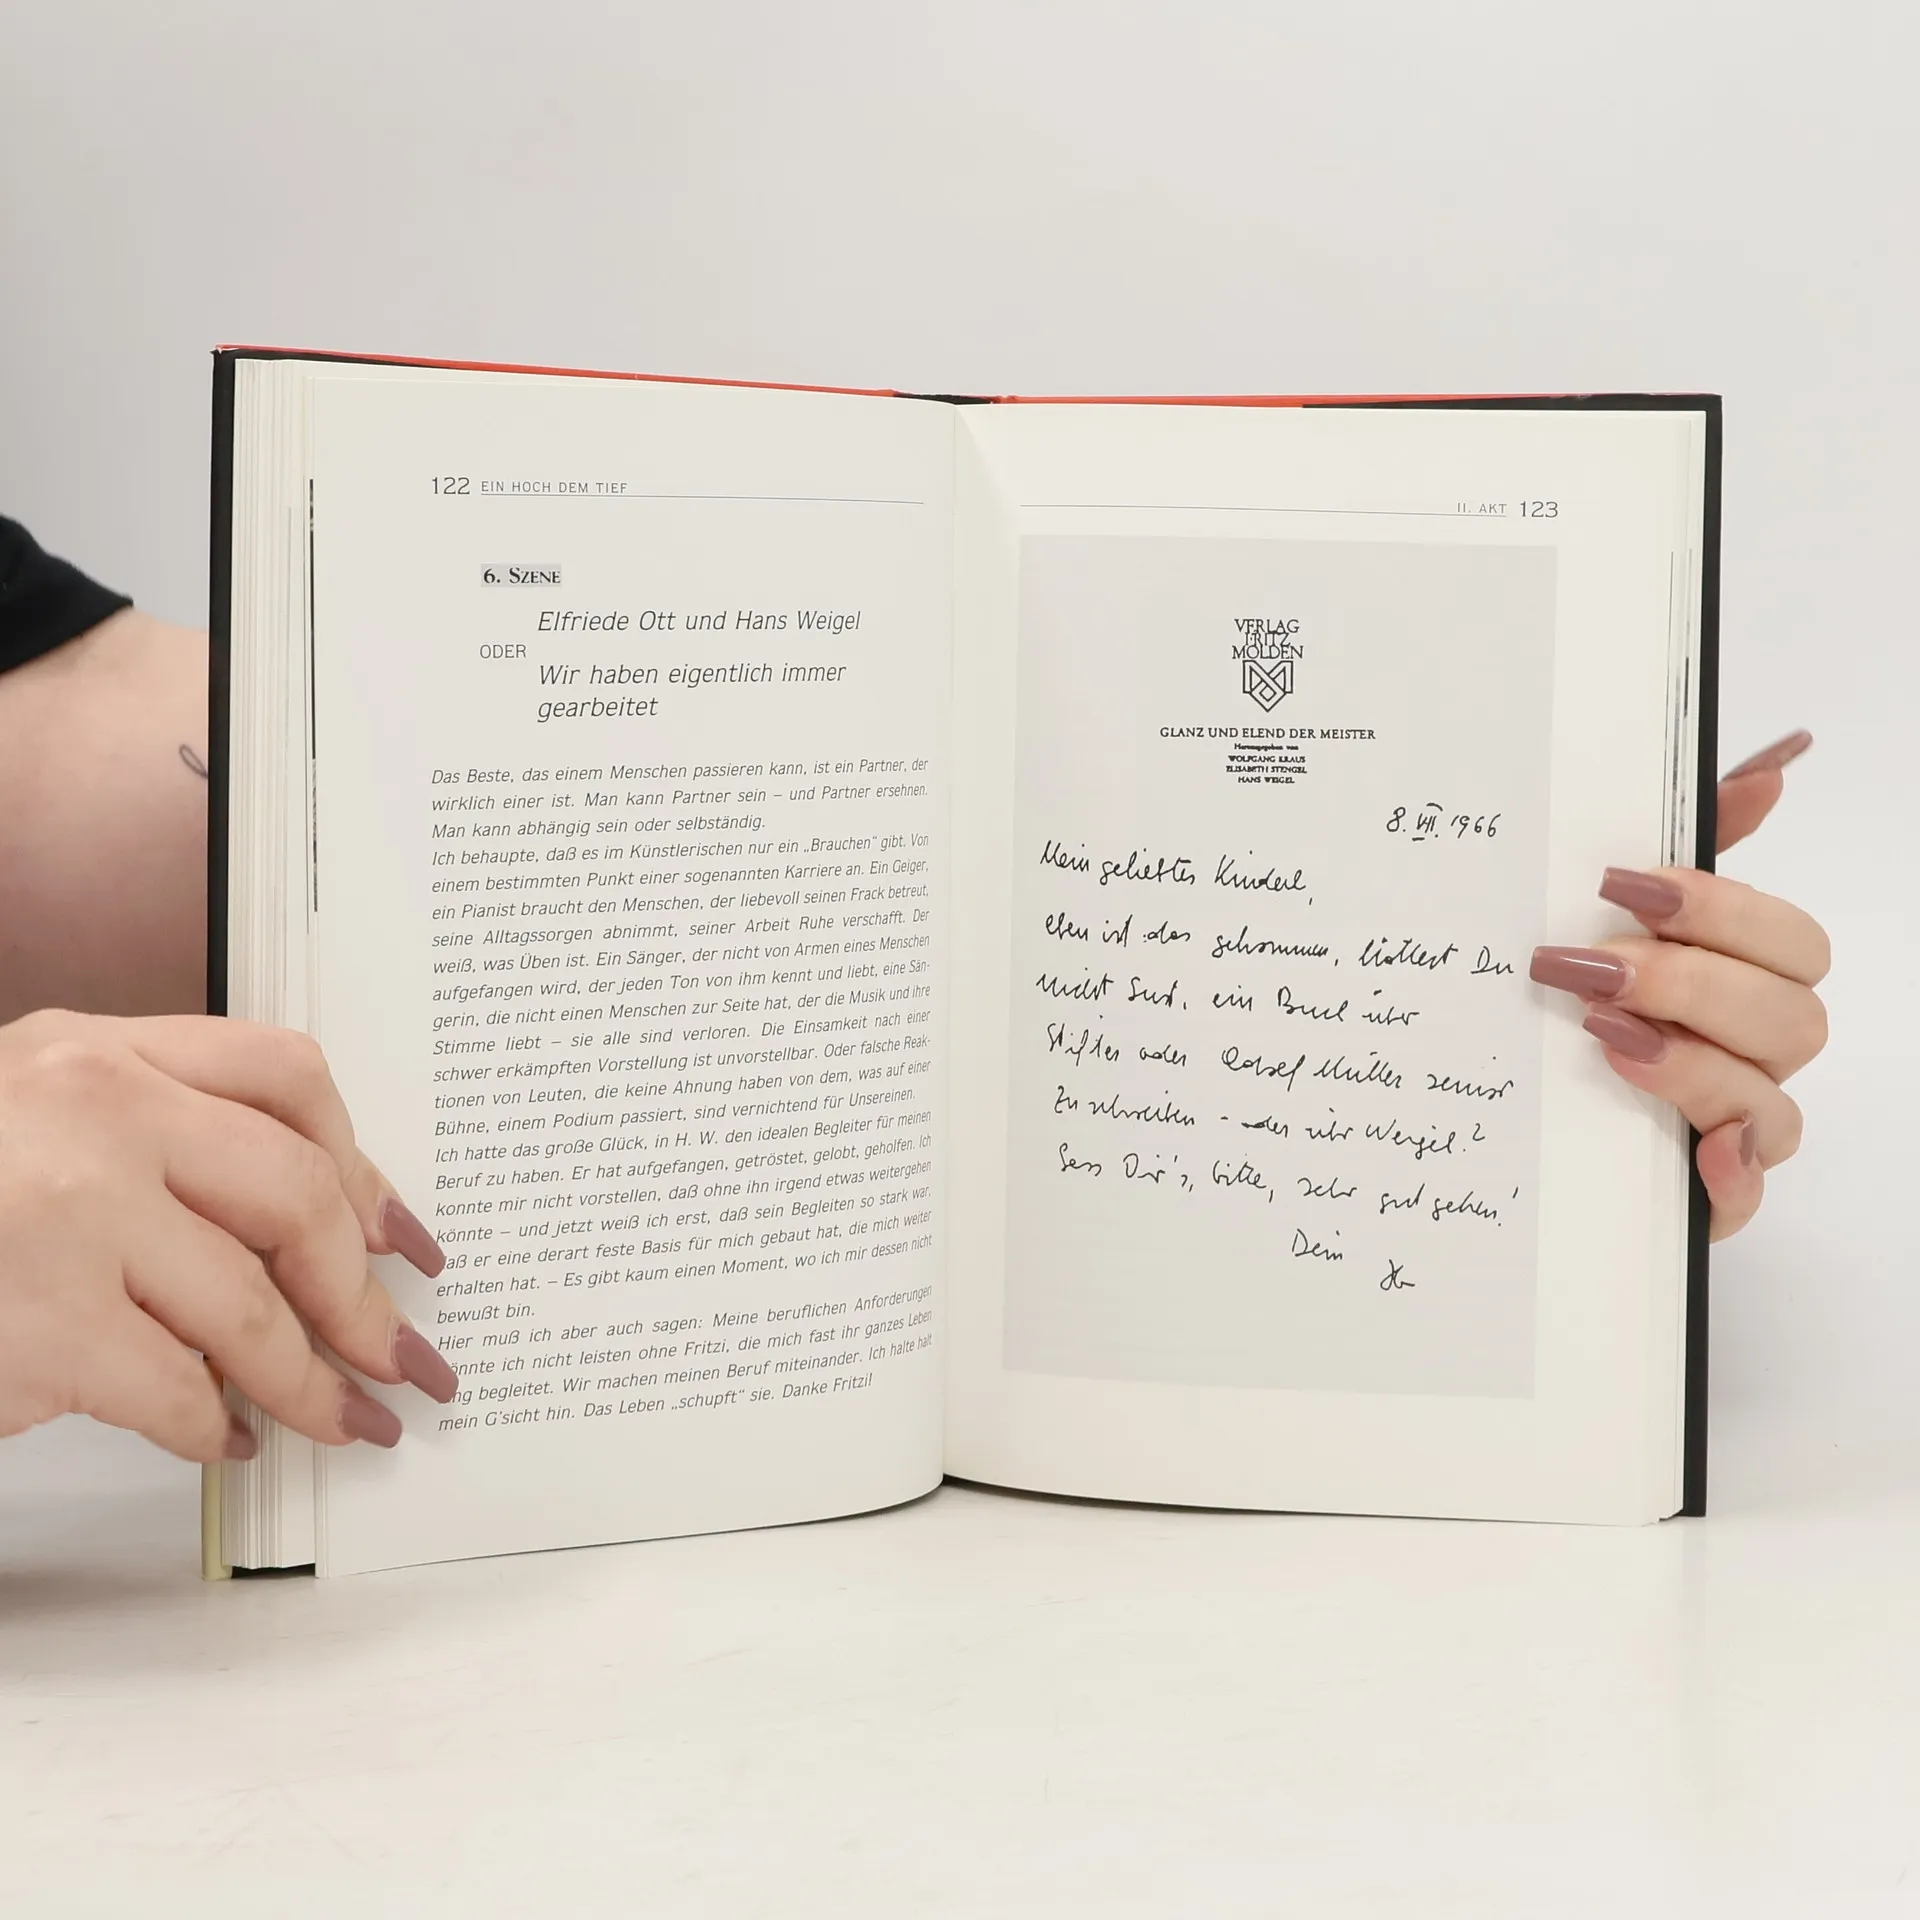 122 EIN HOCH DEM TIEF
6. SZENE
Elfriede Ott und Hans Weigel
ODER
Wir haben eigentlich immer
gearbeitet
Das Beste, das einem Menschen passieren kann, ist ein Partner, der
wirklich einer ist. Man kann Partner sein – und Partner ersehnen.
Man kann abhängig sein oder selbständig.
Ich behaupte, daß es im Künstlerischen nur ein „Brauchen“ gibt. Von
einem bestimmten Punkt einer sogenannten Karriere an. Ein Geiger,
ein Pianist braucht den Menschen, der liebevoll seinen Frack betreut,
seine Alltagssorgen abnimmt, seiner Arbeit Ruhe verschafft. Der
weiß, was Üben ist. Ein Sänger, der nicht von Armen eines Menschen
aufgefangen wird, der jeden Ton von ihm kennt und liebt, eine Sän-
gerin, die nicht einen Menschen zur Seite hat, der die Musik und ihre
Stimme liebt – sie alle sind verloren. Die Einsamkeit nach einer
schwer erkämpften Vorstellung ist unvorstellbar. Oder falsche Reak-
tionen von Leuten, die keine Ahnung haben von dem, was auf einer
Bühne, einem Podium passiert, sind vernichtend für Unsereinen.
Ich hatte das große Glück, in H. W. den idealen Begleiter für meinen
Beruf zu haben. Er hat aufgefangen, getröstet, gelobt, geholfen. Ich
konnte mir nicht vorstellen, daß ohne ihn irgend etwas weitergehen
könnte – und jetzt weiß ich erst, daß sein Begleiten so stark war,
daß er eine derart feste Basis für mich gebaut hat, die mich weiter
erhalten hat. – Es gibt kaum einen Moment, wo ich mir dessen nicht
bewußt bin.
Hier muß ich aber auch sagen: Meine beruflichen Anforderungen
könnte ich nicht leisten ohne Fritzi, die mich fast ihr ganzes Leben
begleitet. Wir machen meinen Beruf miteinander. Ich halte halt
mein G'sicht hin. Das Leben „schupft“ sie. Danke Fritzi!
II. AKT 123
VERLAG
FRITZ
MOLDEN
GLANZ UND ELEND DER MEISTER
Herausgegeben von
WOLFGANG KRAUS
ELISABETH STENGEL
HANS WEIGEL
8. VII. 1966
Mein geliebtes Kinderl,
eben ist das gekommen, hättest Du
nicht Lust, ein Buch über
Stifter oder Adolf Müller senior
zu schreiben - oder über Weigel?
Lass Dir's, bitte, sehr gut gehen!
Dein